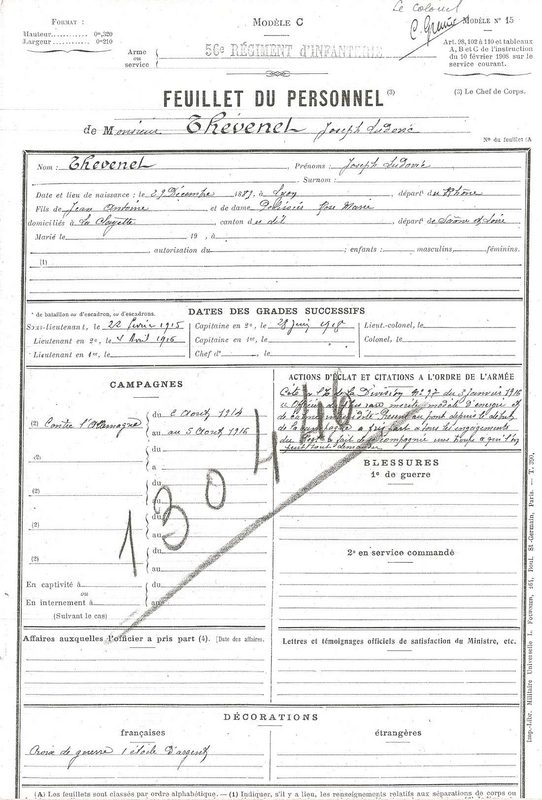 Le Colonel
Format :
Hauteur........... 0m,320
Largeur ........... 0m210
Modèle C
C. Modèle N° 15
Arme
ou
service
56e RÉGIMENT d'INFANTERIE
Art. 98, 102 à 110 et tableaux
A, B et C de l'instruction
du 10 février 1908 sur le
service courant.
FEUILLET DU PERSONNEL (3)
(3) Le Chef de Corps.
de Monsieur Thévenet Joseph Ludovic
N° du feuillet (A
Nom : Thevenet Prénoms : Joseph Ludovic
Surnom :
Date et lieu de naissance : le 29 Décembre 1883, à Lyon départ du Rhône
Fils de Jean Antoine et de dame Rose Marie
domiciliés à La Clayette canton du dit départ de Saône et Loire
Marié le 19 , à
autorisation du ; enfants : masculins, féminins.
(1)
* de bataillon ou d'escadron, ou d'escadrons.
DATES DES GRADES SUCCESSIFS
Sous-lieutenant, le 22 février 1915 Capitaine en 2e, le 28 juin 1918 Lieut.-colonel, le
Lieutenant en 2e, le 4 Avril 1916 Capitaine en 1er, le Colonel, le
Lieutenant en 1er, le Chef d* , le
CAMPAGNES
(2) Contre l'Allemagne du 2 Aout 1914
au 5 Aout 1916
(2) du
au
(2) du
au
(2) du
au
(2) du
au
En captivité à du
ou au
En internement à du
(Suivant le cas) au
130446
ACTIONS D'ÉCLAT ET CITATIONS A L'ORDRE DE L'ARMÉE
de la Division N° 97 du 3 janvier 1916
Officier de plus rare mérite, modèle d'énergie et
front depuis le début
de la campagne a pris part à tous les engagements
du a fait de sa compagnie une troupe à qui l'on
peut tout demander
BLESSURES
1° de guerre
2° en service commandé
Affaires auxquelles l'officier a pris part (4). (Date des affaires.
Lettres et témoignages officiels de satisfaction du Ministre, etc.
DÉCORATIONS
françaises
étrangères
Croix de guerre 1 étoile d'argent
(A) Les feuillets sont classés par ordre alphabétique. — (1) Indiquer, s'il y a lieu, les renseignements relatifs aux séparations de corps ou
Imp.-Libr. Militaire Universelle L. Fournier, 264, Boul. St-Germain, Paris. — T. 290.